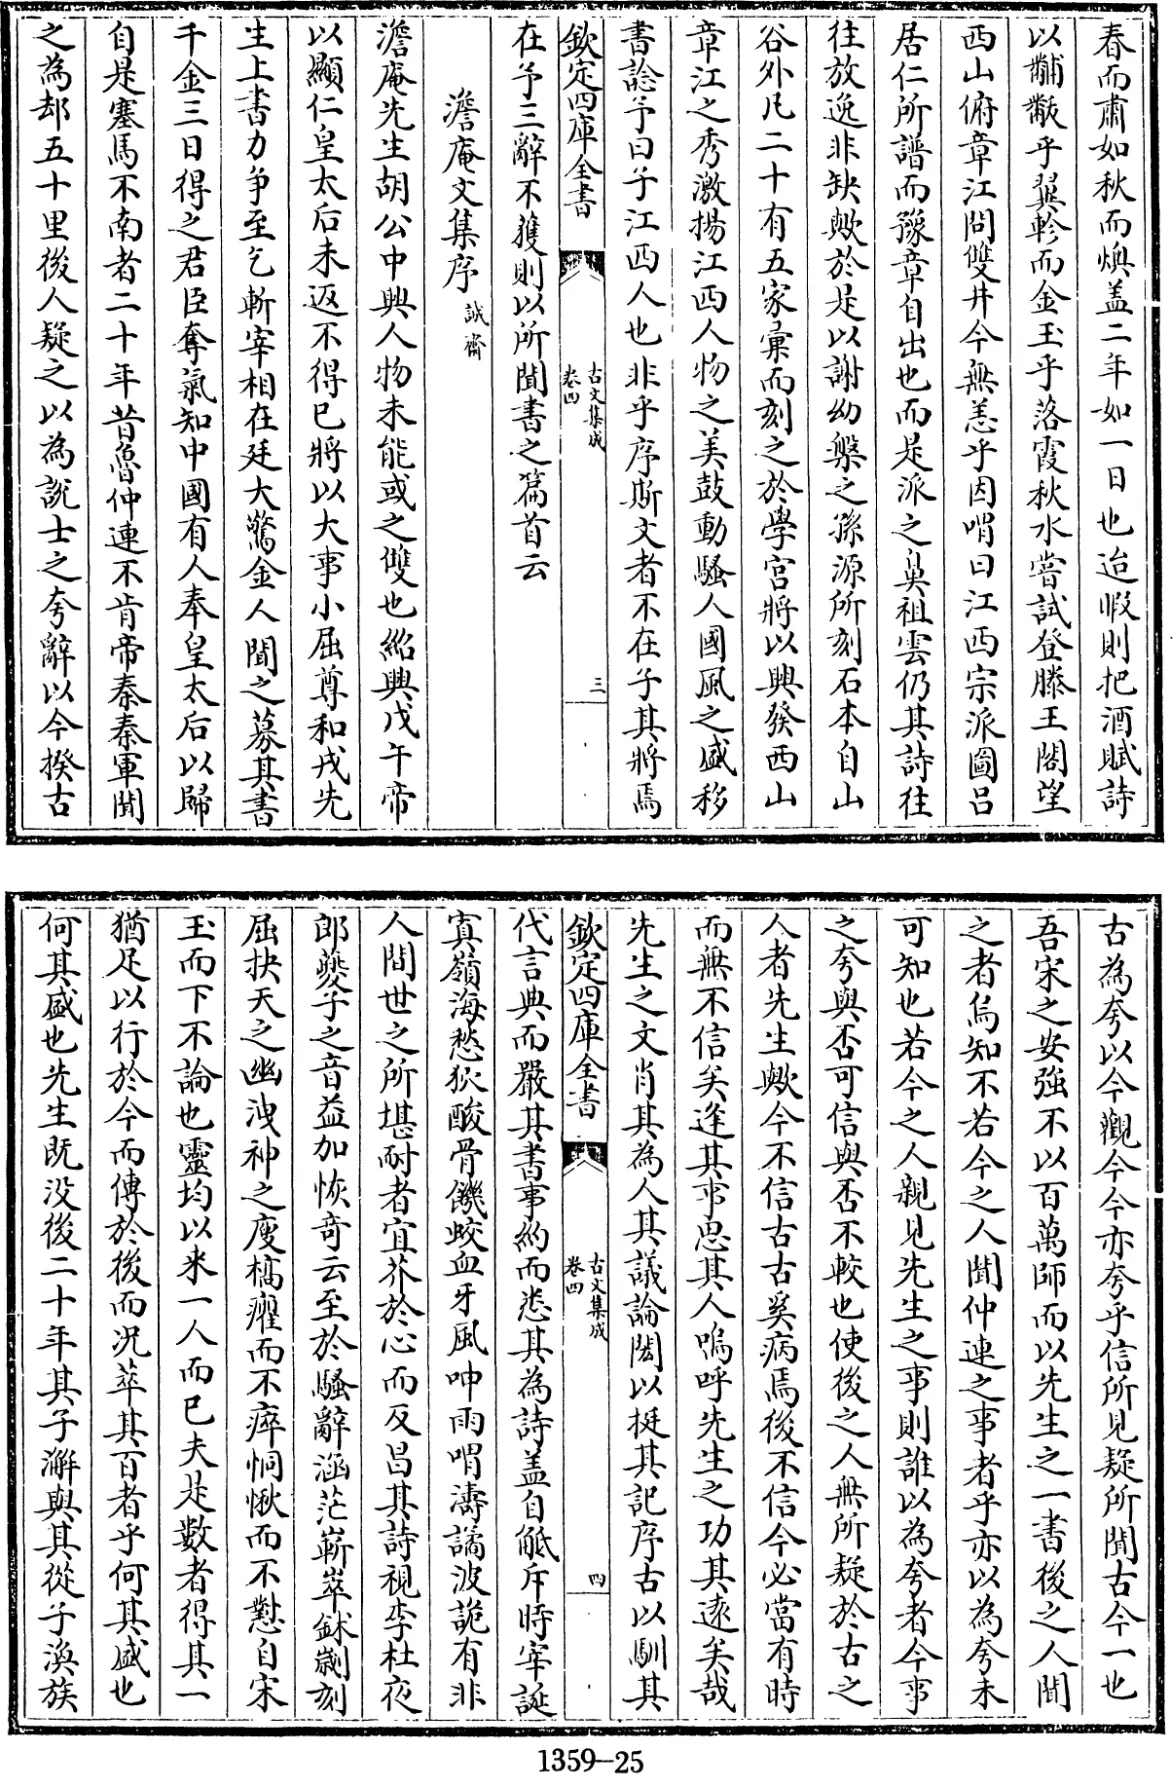 春而肅如秋而燠盖二年如一日也迨暇則把酒賦詩
以黼黻乎翼軫而金玉乎落霞秋水嘗試登滕王閣望
西山俯章江問雙井今無恙乎因喟曰江西宗派圖吕
居仁所譜而豫章自出也而是派之鼻祖雲仍其詩往
往放逸非缺歟於是以謝幼槃之孫源所刻石本自山
谷外凡二十有五家彙而刻之於學宫將以興發西山
章江之秀激揚江西人物之美鼓動騷人國風之盛移
書諗予曰子江西人也非乎序斯文者不在子其將焉
欽定四庫全書
古文集成
卷四
三
在予三辭不獲則以所聞書之篇首云
澹庵文集序 誠齋
澹庵先生胡公中興人物未能或之雙也紹興戊午帝
以顯仁皇太后未返不得已將以大事小屈尊和戎先
生上書力争至乞斬宰相在廷大驚金人聞之募其書
千金三日得之君臣奪氣知中國有人奉皇太后以歸
自是塞馬不南者二十年昔魯仲連不肯帝秦秦軍聞
之為却五十里後人疑之以為說士之夸辭以今揆古
古為夸以今觀今今亦夸乎信所見疑所聞古今一也
吾宋之安強不以百萬師而以先生之一書後之人聞
之者烏知不若今之人聞仲連之事者乎亦以為夸未
可知也若今之人親見先生之事則誰以為夸者今事
之夸與否可信與否不較也使後之人無所疑於古之
人者先生歟今不信古古奚病焉後不信今必當有時
而無不信矣逢其事思其人嗚呼先生之功其遠矣哉
先生之文肖其為人其議論閎以挺其記序古以馴其
欽定四庫全書
古文集成
卷四
四
代言典而嚴其書事約而悉其為詩盖自觝斥時宰誕
寘嶺海愁狖酸骨饑蛟血牙風呻雨喟濤譎波詭有非
人間世之所堪耐者宜芥於心而反昌其詩視李杜夜
郎夔子之音益加恢奇云至於騷辭涵茫嶄崒鉥劌刻
屈抉天之幽洩神之廋槁癯而不瘁恫愀而不懟自宋
玉而下不論也靈均以来一人而已夫是數者得其一
猶足以行於今而傳於後而况萃其百者乎何其盛也
何其盛也先生既没後二十年其子澥與其從子渙族
1359-25